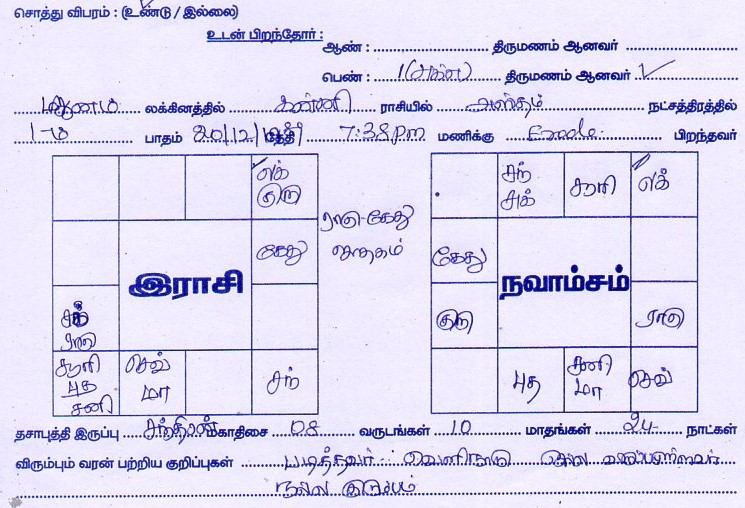 சொத்து விபரம் : (உண்டு / இல்லை)
உடன் பிறந்தோர் :
ஆண் : திருமணம் ஆனவர்
பெண் : 1 திருமணம் ஆனவர்
லக்கினத்தில் கன்னி ராசியில் அஸ்தம் நட்சத்திரத்தில்
1-ம் பாதம் 20/12/1989 தேதி 7:38 pm மணிக்கு Erode பிறந்தவர்
லக் குரு
ராகு கேது ஜாதகம்
சந் சுக்
சூரி
லக்
கேது
கேது
இராசி
நவாம்சம்
ராகு
குரு
ராகு
சூரி புத சனி
செவ் மா
சந்
புத
சனி மா
செவ்
தசாபுத்தி இருப்பு சந்திரன் மகாதிசை 08 வருடங்கள் 10 மாதங்கள் 24 நாட்கள்
விரும்பும் வரன் பற்றிய குறிப்புகள் படித்தவர் வெளிநாடு
நல்ல குடும்பம்